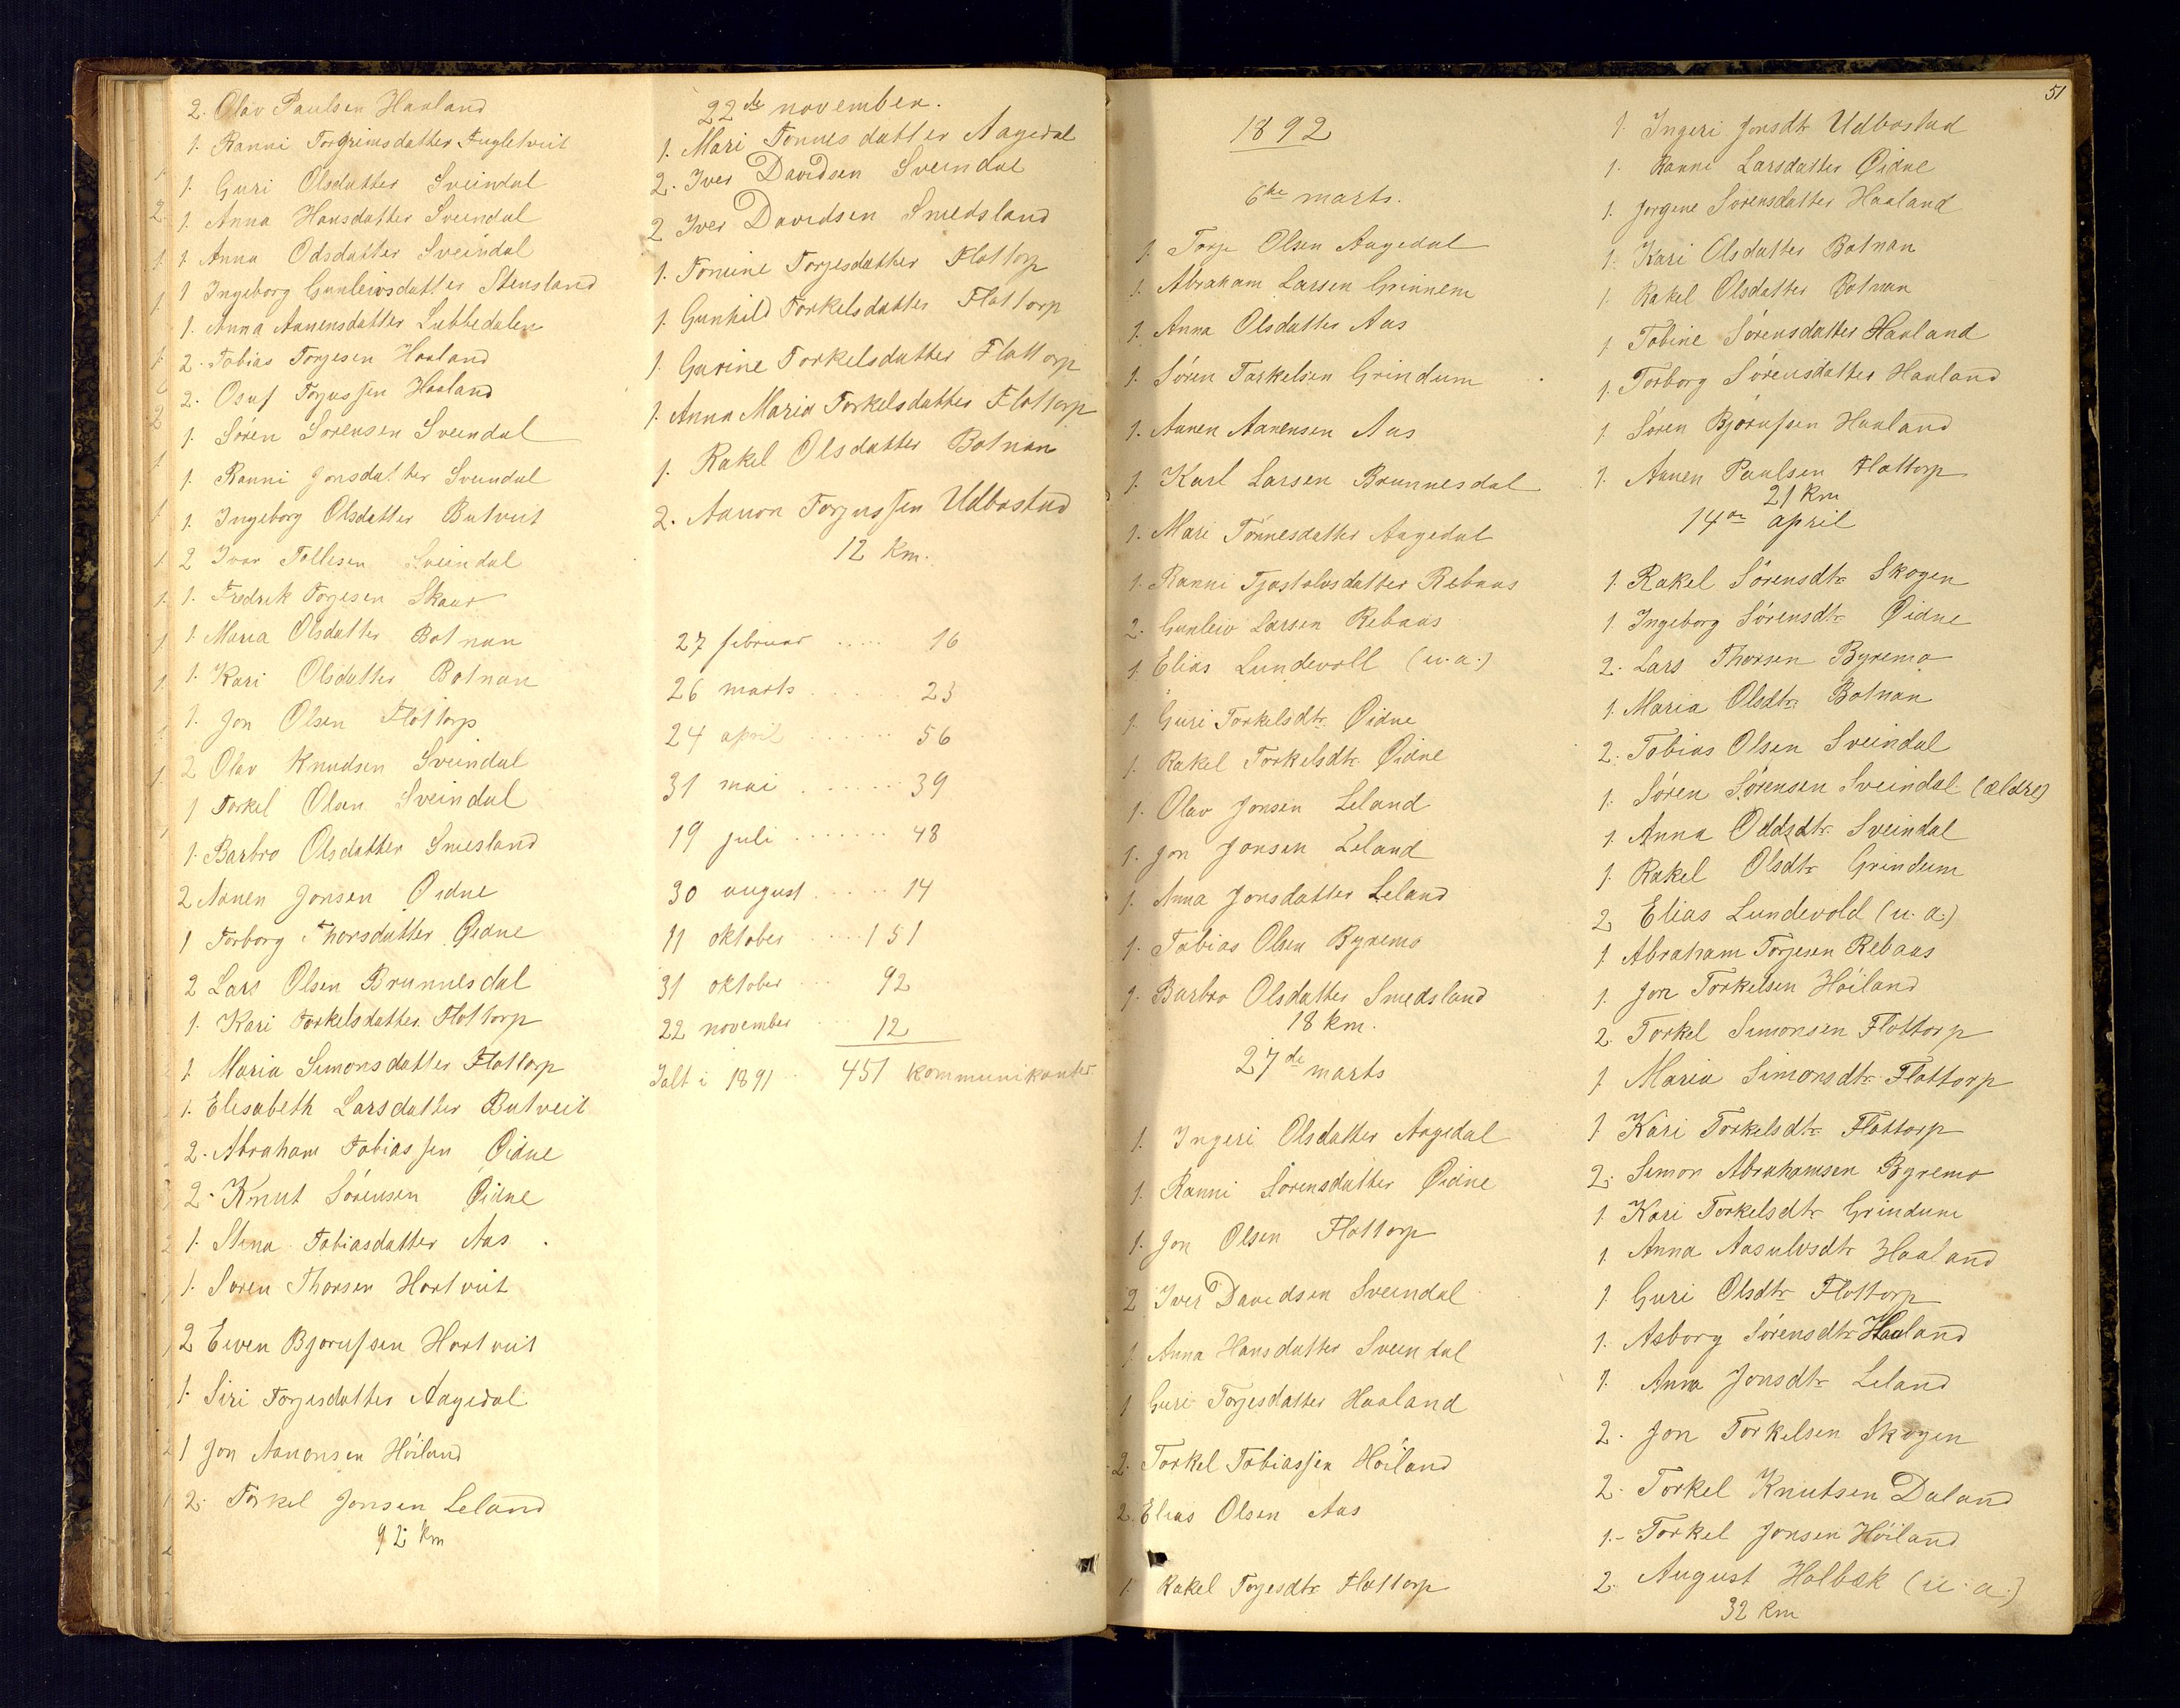 2. Olav Paulsen Haaland
1. Ranni Torgrimsdatter Fugletveit
1. Guri Olsdatter Sveindal
1. Anna Hansdatter Sveindal
1. Anna Odsdatter Sveindal
1 Ingeborg Gunleivsdatter Stensland
1. Anna Aanensdatter Lubbedalen
2. Tobias Torjesen Haaland
2. Osuf Torjussen Haaland
1. Sören Sörensen Sveindal
1. Ranni Jonsdatter Sveindal
1. Ingeborg Olsdatter Butveit
2 Ivar Tollesen Sveindal
1. Fredrik Torjesen Skaar
1. Maria Olsdatter Botnan
1. Kari Olsdatter Botnan
1. Jon Olsen Flottorp
2 Olav Knudsen Sveindal
1 Torkel Olsen Sveindal
1. Barbro Olsdatter Smesland
2 Aanen Jonsen Øidne
1 Torborg Thorsdatter Øidne
2 Lars Olsen Brunnesdal
1. Kari Torkelsdatter Flottorp
1. Maria Simonsdatter Flottorp
1. Elisabeth Larsdatter Butveit
2. Abraham Tobiassen Øidne
2. Knut Sörensen Øidne
1. Stina Tobiasdatter Aas
1. Sören Thorsen Hortveit
2 Even Bjorufsen Hortveit
1. Siri Torjesdatter Aagedal
1 Jon Aanonsen Höiland
2. Torkel Jonsen Leland
92 km
22de november.
1. Mari Tönnesdatter Aagedal
2. Iver Davidsen Sveindal
2 Iver Davidsen Smedsland
1. Tomine Torjesdatter Flottorp
1. Gunhild Torkelsdatter Flottorp
1. Gurine Torkelsdatter Flottorp
1. Anna Maria Torkelsdatter Flottorp
1. Rakel Olsdatter Botnan
2. Aanon Torjussen Udbostad
12 Km.
27 februar ..... 16
26 marts ...... 23
24 april ....... 56
31 mai ....... 39
19 juli ....... 48
30 august ..... 14
11 oktober .... 151
31 oktober ... 92
22 november ... 12
Ialt i 1891 .. 451 kommunikanter
51
1892
6te marts.
1. Torje Olsen Aagedal
1. Abraham Larsen Grinnem
1. Anna Olsdatter Aas
1. Sören Torkelsen Grindum
1. Aanen Aanensen Aas
1. Karl Larsen Brunnesdal
1. Mari Tönnesdatter Aagedal
1. Ranni Tjostolvsdatter Rebaas
2. Gunleiv Larsen Rebaas
1 Elias Lundevoll (u.a.)
1. Guri Torkelsdtr Øidne
1. Rakel Torkelsdtr Øidne
1. Olav Jonsen Leland
1. Jon Jonsen Leland
1. Anna Jonsdatter Leland
1. Tobias Olsen Byremo
1. Barbro Olsdatter Smedsland
18 km.
27de marts
1. Ingeri Olsdatter Aagedal
1. Ranni Sörensdatter Øidne
1. Jon Olsen Flottorp
2 Iver Davidsen Sveindal
1 Anna Hansdatter Sveindal
1 Guri Torjesdatter Haaland
2. Torkel Tobiassen Höiland
2. Elias Olsen Aas
1. Rakel Torjesdtr Flottorp
1. Ingeri Jonsdtr Udbostad
1. Ranni Larsdatter Øidne
1. Jorgene Sörensdatter Haaland
1. Kari Olsdatter Botnan
1. Rakel Olsdatter Botnan
1 Tobine Sörensdatter Haaland
1. Torborg Sörensdatter Haaland
1. Sören Bjorufsen Haaland
1. Aanen Paulsen Flottorp
21 Km
14de april
1. Rakel Sörensdtr Skogen
1. Ingeborg Sörensdtr Øidne
2. Lars Thorsen Byremo
1. Maria Olsdtr Botnan
2. Tobias Olsen Sveindal
1. Sören Sörensen Sveindal (ældre)
1. Anna Oddsdtr Sveindal
1. Rakel Olsdtr Grindum
2 Elias Lundevold (u. a.)
1 Abraham Torjesen Rebaas
1. Jon Torkelsen Höiland
2. Torkel Simonsen Flottorp
1 Maria Simonsdtr Flottorp
1 Kari Torkelsdtr Flottorp
2. Simon Abrahamsen Byremo
1. Kari Torkelsdtr Grindum
1 Anna Aasulvsdtr Haaland
1 Guri Olsdtr Flottorp
1. Asborg Sörensdtr Haaland
1. Anna Jonsdtr Leland
2. Jon Torkelsen Skogen
2. Torkel Knutsen Daland
1.- Torkel Jonsen Höiland
2. August Holbæk (u. a.)
32 Km